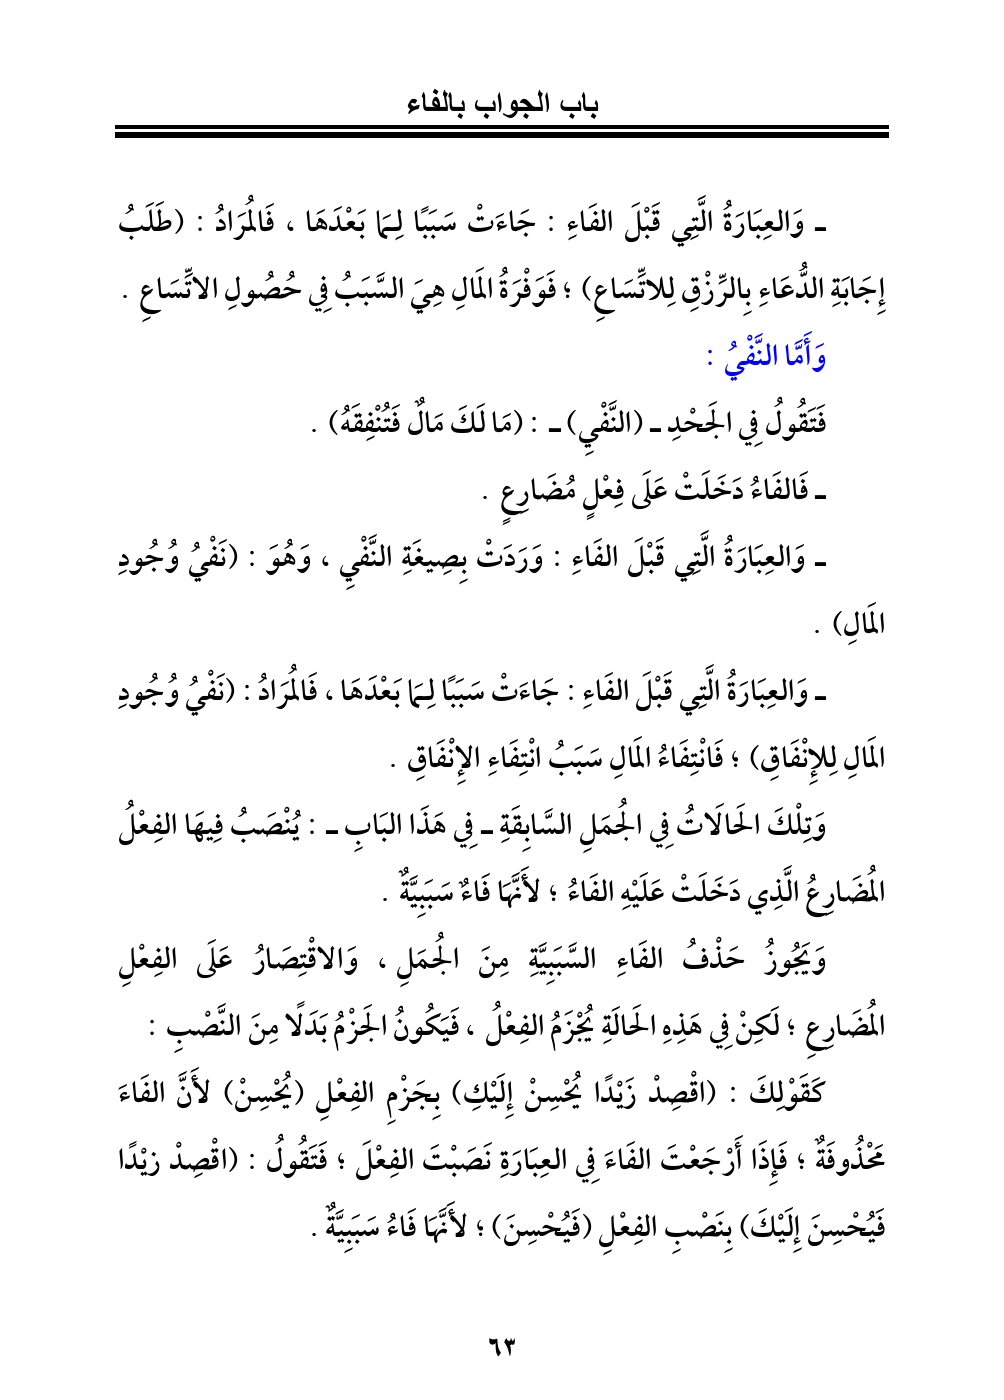 باب الجواب بالفاء
ـ وَالعِبَارَةُ الَّتِي قَبْلَ الفَاءِ : جَاءَتْ سَبَبًا لِـمَا بَعْدَهَا ، فَالمُرَادُ : (طَلَبُ
إِجَابَةِ الدُّعَاءِ بِالرِّزْقِ لِلاتِّسَاعِ) ؛ فَوَفْرَةُ المَالِ هِيَ السَّبَبُ فِي حُصُولِ الاتِّسَاعِ .
وَأَمَّا النَّفْيُ :
فَتَقُولُ فِي الجَحْدِ ـ (النَّفْيِ) ـ : (مَا لَكَ مَالٌ فَتُنْفِقَهُ) .
ـ فَالفَاءُ دَخَلَتْ عَلَى فِعْلٍ مُضَارِعٍ .
ـ وَالعِبَارَةُ الَّتِي قَبْلَ الفَاءِ : وَرَدَتْ بِصِيغَةِ النَّفْيِ ، وَهُوَ : (نَفْيُ وُجُودِ
المَالِ) .
ـ وَالعِبَارَةُ الَّتِي قَبْلَ الفَاءِ : جَاءَتْ سَبَبًا لِـمَا بَعْدَهَا ، فَالمُرَادُ : (نَفْيُ وُجُودِ
المَالِ لِلإِنْفَاقِ) ؛ فَانْتِفَاءُ المَالِ سَبَبُ انْتِفَاءِ الإِنْفَاقِ .
وَتِلْكَ الحَالَاتُ فِي الجُمَلِ السَّابِقَةِ ـ فِي هَذَا البَابِ ـ : يُنْصَبُ فِيهَا الفِعْلُ
المُضَارِعُ الَّذِي دَخَلَتْ عَلَيْهِ الفَاءُ ؛ لأَنَّهَا فَاءٌ سَبَبِيَّةٌ .
وَيَجُوزُ حَذْفُ الفَاءِ السَّبَبِيَّةِ مِنَ الجُمَلِ ، وَالاقْتِصَارُ عَلَى الفِعْلِ
المُضَارِعِ ؛ لَكِنْ فِي هَذِهِ الحَالَةِ يُجْزَمُ الفِعْلُ ، فَيَكُونُ الجَزْمُ بَدَلًا مِنَ النَّصْبِ :
كَقَوْلِكَ : (اقْصِدْ زَيْدًا يُحْسِنْ إِلَيْكِ) بِجَزْمِ الفِعْلِ (يُحْسِنْ) لأَنَّ الفَاءَ
مَحْذُوفَةٌ ؛ فَإِذَا أَرْجَعْتَ الفَاءَ فِي العِبَارَةِ نَصَبْتَ الفِعْلَ ؛ فَتَقُولُ : (اقْصِدْ زيْدًا
فَيُحْسِنَ إِلَيْكَ) بِنَصْبِ الفِعْلِ (فَيُحْسِنَ) ؛ لأَنَّهَا فَاءُ سَبَبِيَّةٌ .
٦٣